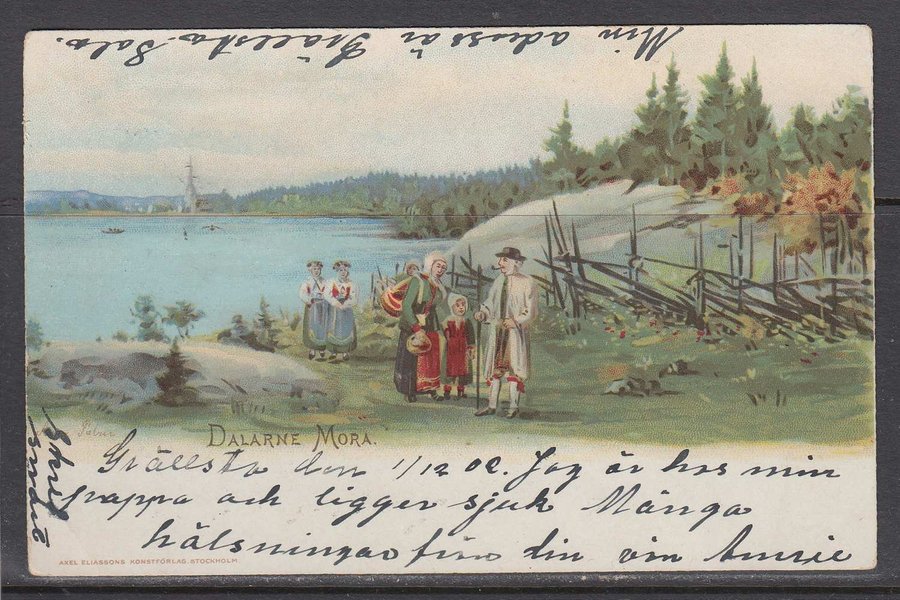 Min adress är Grällsta. Sala.
DALARNE MORA.
Grällsta den 1/12 02. Jag är hos min
pappa och ligger sjuk Många
hälsningar från din vän
Skrif
AXEL ELIASSONS KONSTFÖRLAG. STOCKHOLM